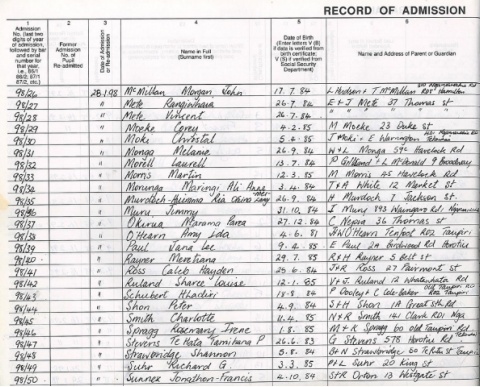 RECORD OF ADMISSION
1
2
3
4
5
6
Admission No. (last two digits of year of admission, followed by bar and serial number for that year, i.e., 86/1 86/2; 87/1 87/2, etc.)
Former Admission No. of Pupil Re-admitted
Date of Admission or Re-admission
Name in Full (Surname first)
Date of Birth (Enter letters V (B) if date is verified from birth certificate; V (S) if verified from Social Security Department)
Name and Address of Parent or Guardian
98/26 28.1.98 McMillan Morgan John 17.7.84 L Hodsen & T McMillan Hamilton
98/27 " Mete Ranginhuia 26.7.84 E & J Mete 37 Thomas St
98/28 " Mete Vincent 26.7.84 " " " "
98/29 " Moeke Corey 4.2.85 M Moeke 23 Duke St
98/30 " Moki Chrystal 5.6.85 J Moki & E Warrington
98/31 " Monga Melanie 26.9.84 W & L Monga Havelock Rd
98/32 " Morell Laurell 13.7.84 P & L McDonald 9 Broadway
98/33 " Morris Martin 12.3.85 M Morris 45 Havelock Rd
98/34 " Morunga Maringi Ali Anna 3.4.84 T & A White 12 Market St
98/35 " Murdoch-Auvanna Ria 26.9.84 H Murdoch 7 Jackson St
98/36 " Muru Jimmy 31.10.84 I Muru 893 Waingaro Rd Ngaruawahia
98/37 " Okirua Marama Parea 27.12.84 C Nepia 36 Thomas St
98/38 " O'Hearn Amy Lda 4.6.81 O'Hearn Tenfoot RD2 Taupiri
98/39 " Paul Jana Lee 9.4.85 E Paul 24 Birdwood Rd Horotiu
98/40 " Rayner Meretiana 29.7.85 R & H Rayner 5 Belt St
98/41 " Ross Caleb Hayden 25.6.84 J & R Ross 27 Fairmont St
98/42 " Ruland Sharee Louise 12.1.85 V & J Ruland 12 Whatawhata Rd
98/43 " Schubert Khadiri P Dooley & C Cole-Baker Old Taupiri Rd
98/44 " Shon Peter 4.9.84 S & H Short 1A Great Sth Rd
98/45 " Smith Charlotte 11.4.85 N & R Smith 141 Clark RD1 Nga
98/46 " Spragg Rosemary Irene 1.8.85 M & R Spragg 60 Old Taupiri Rd
98/47 " Stevens Te Kata Tamihana P 26.6.83 G Stevens 578 Horotiu Rd
98/47 " Strawbridge Shannon 5.8.84 B & N Strawbridge 60 Taupiri
98/49 " Suhr Richard G 3.3.85 P & L Suhr 20 King St
98/50 " Sunnex Jonathon-Francis 2.10.84 S & R Orton 13 Westgate St